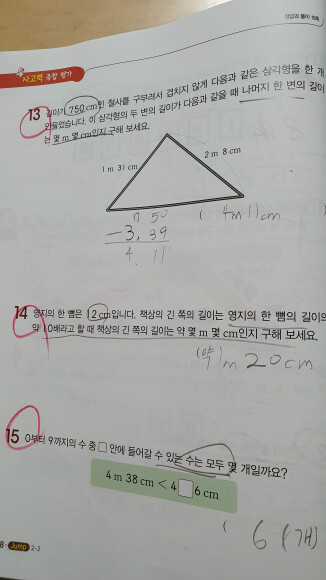 정답과 풀이
사고력 종합 평가
13 길이가 750 cm인 철사를 구부려서 겹치지 않게 다음과 같은 삼각형을 한 개
만들었습니다. 이 삼각형의 두 변의 길이가 다음과 같을 때 나머지 한 변의 길이
는 몇 m 몇 cm인지 구해 보세요.
1 m 31 cm
2 m 8 cm
7.50
( 4m 11cm
-3.39
4.11
14 영지의 한 뼘은 12 cm입니다. 책상의 긴 쪽의 길이는 영지의 한 뼘의 길이의
약 10배라고 할 때 책상의 긴 쪽의 길이는 약 몇 m 몇 cm인지 구해 보세요.
(약) 1m 20cm
15 0부터 9까지의 수 중 □ 안에 들어갈 수 있는 수는 모두 몇 개일까요?
4 m 38 cm < 4 □ 6 cm
( 6 (개)
8 Jump 2-2